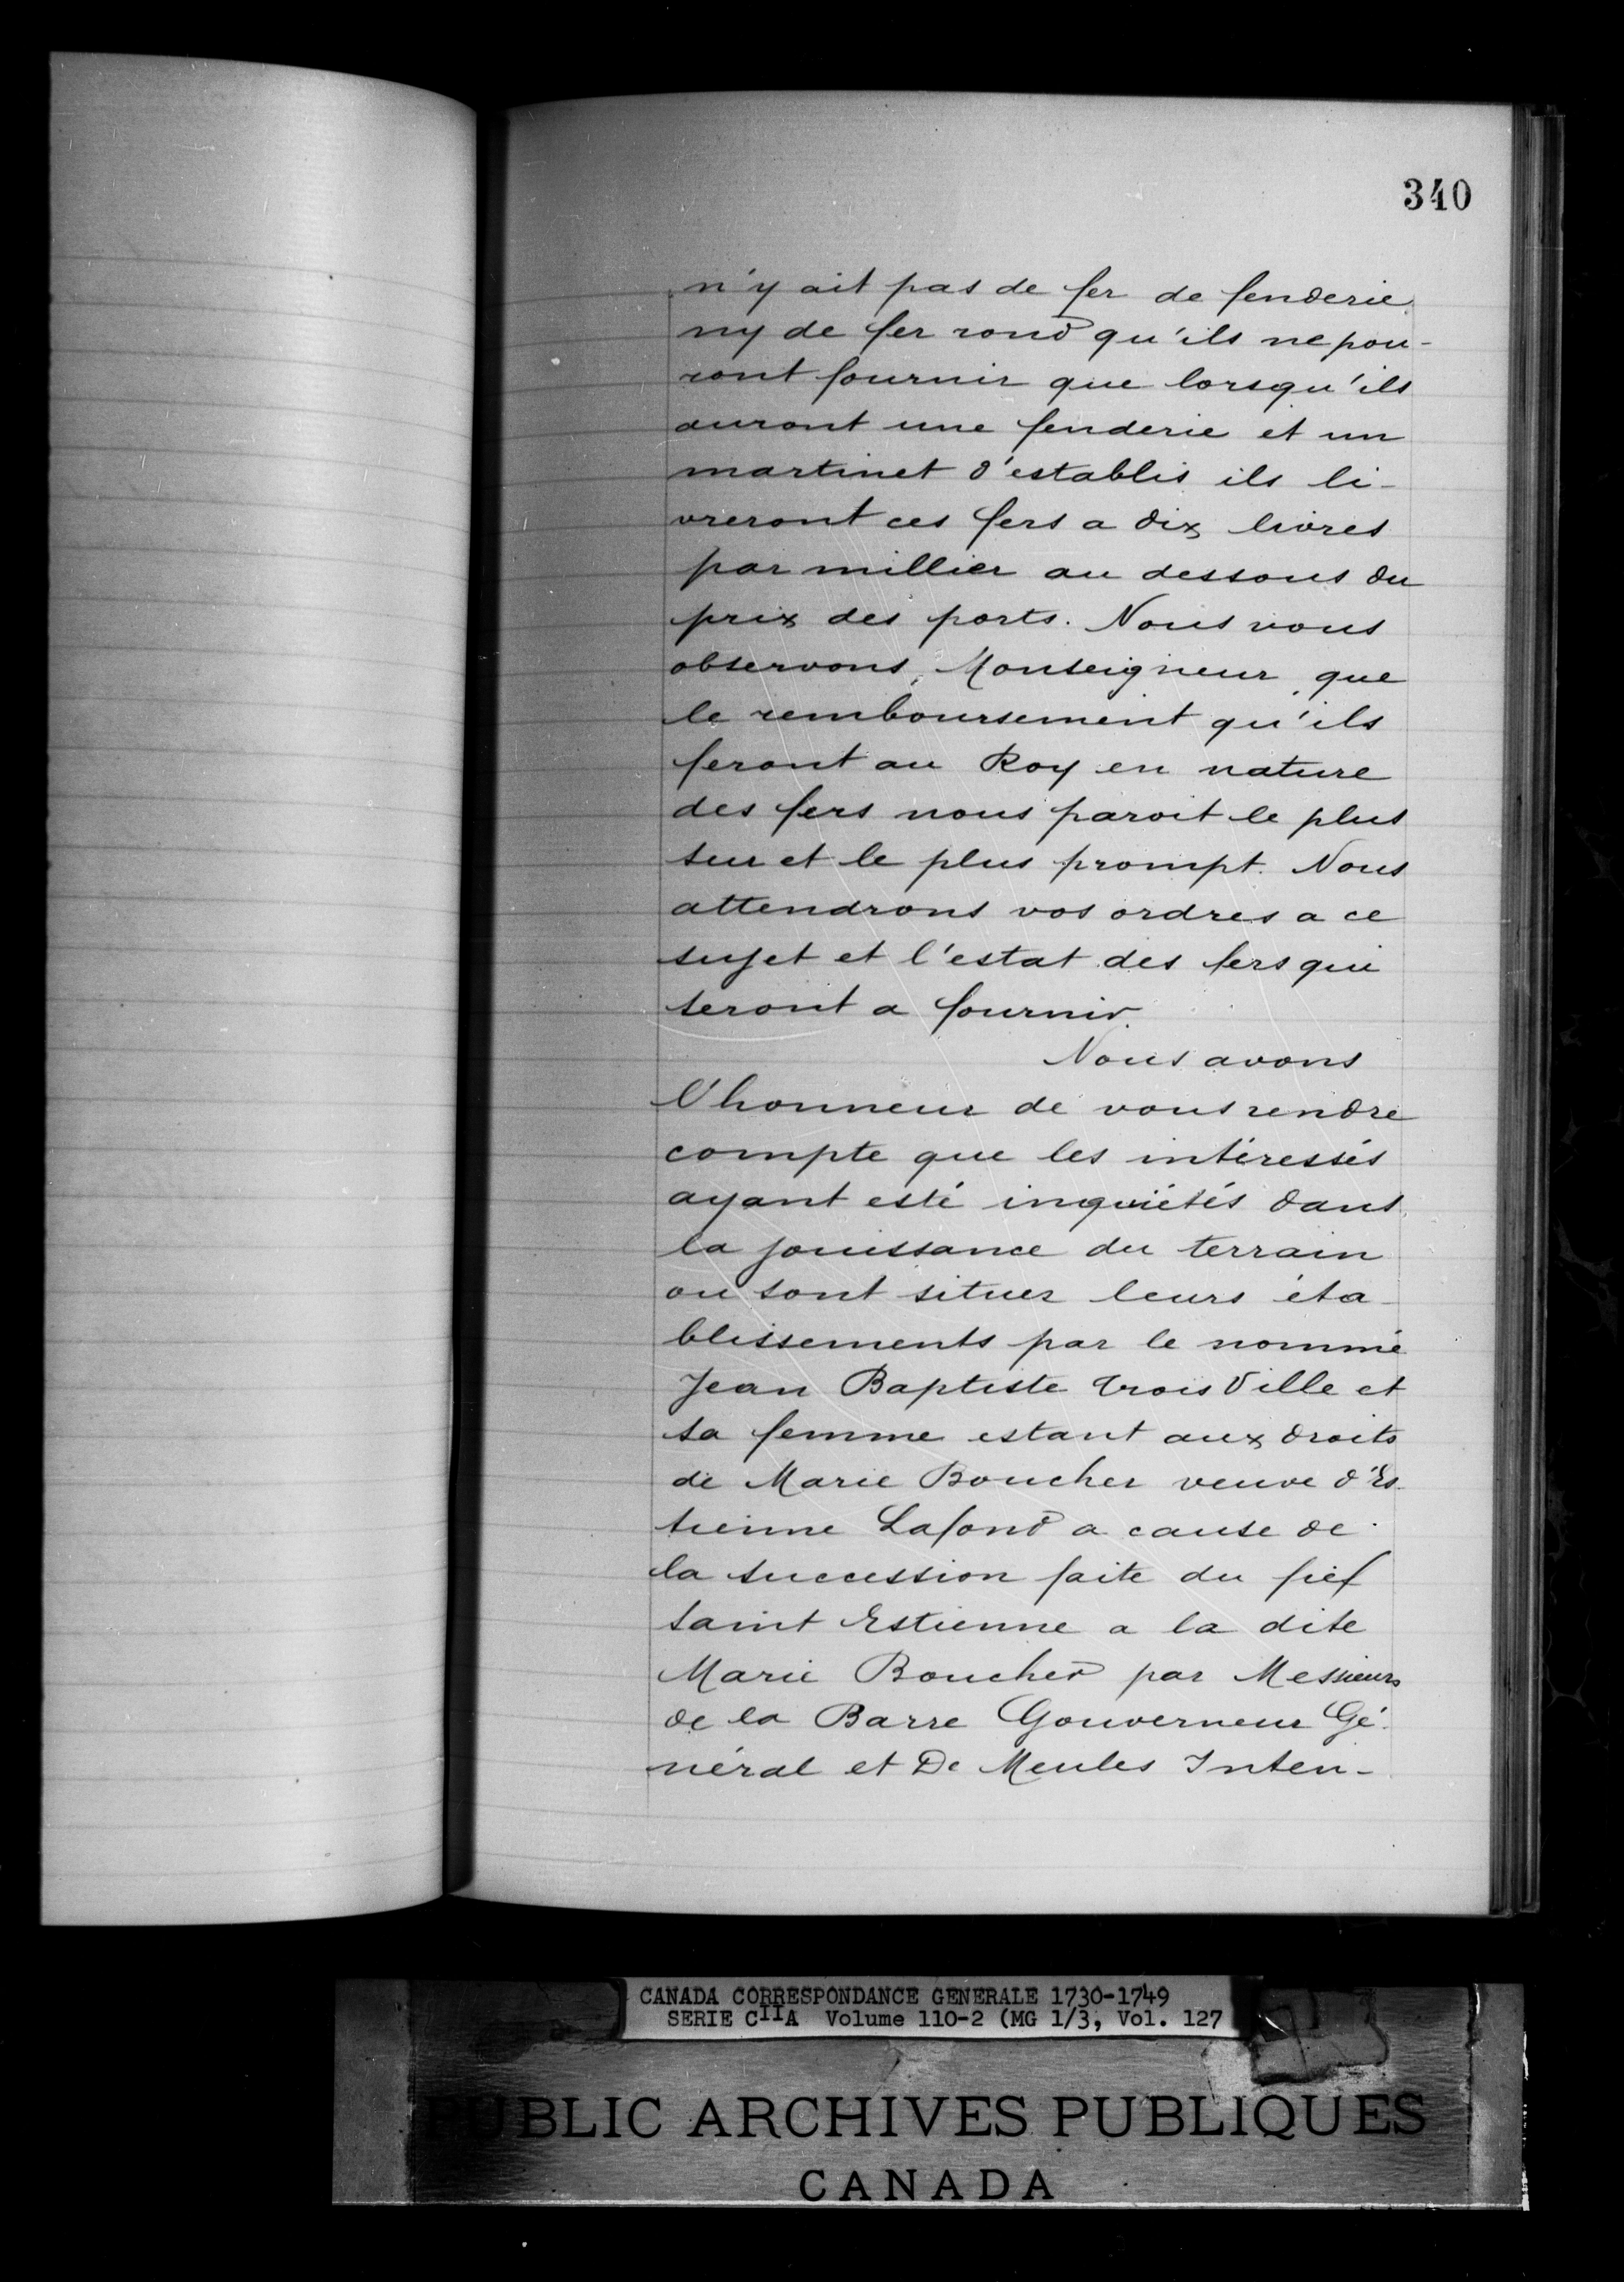 340
n'y ait pas de fer de fenderie
ny de fer rond qu'ils ne pou-
ront fournir que lorsqu'ils
auront une fenderie et un
martinet d'establis ils li-
vreront ces fers a dix livres
par millier au dessous du
prix des ports. Nous vous
observons, Monseigneur, que
le remboursement qu'ils
feront au Roy en nature
des fers nous paroit le plus
sur et le plus prompt. Nous
attendrons vos ordres a ce
sujet et l'estat des fers qui
seront a fournir.
Nous avons
l'honneur de vous rendre
compte que les intéressés
ayant esté inquiétés dans
la jouissance du terrain
ou sont situer leurs éta-
blissements par le nommé
Jean Baptiste trois Ville et
sa femme estant aux droits
de Marie Boucher veuve d'Es-
tienne Lafond a cause de
la succession faite du fief
saint Estienne a la dite
Marie Boucher par Messieurs
de la Barre Gouverneur Gé-
néral et De Meules Inten-
CANADA CORRESPONDANCE GENERALE 1730-1749
SERIE CIIA Volume 110-2 (MG 1/3, Vol. 127
PUBLIC ARCHIVES PUBLIQUES
CANADA